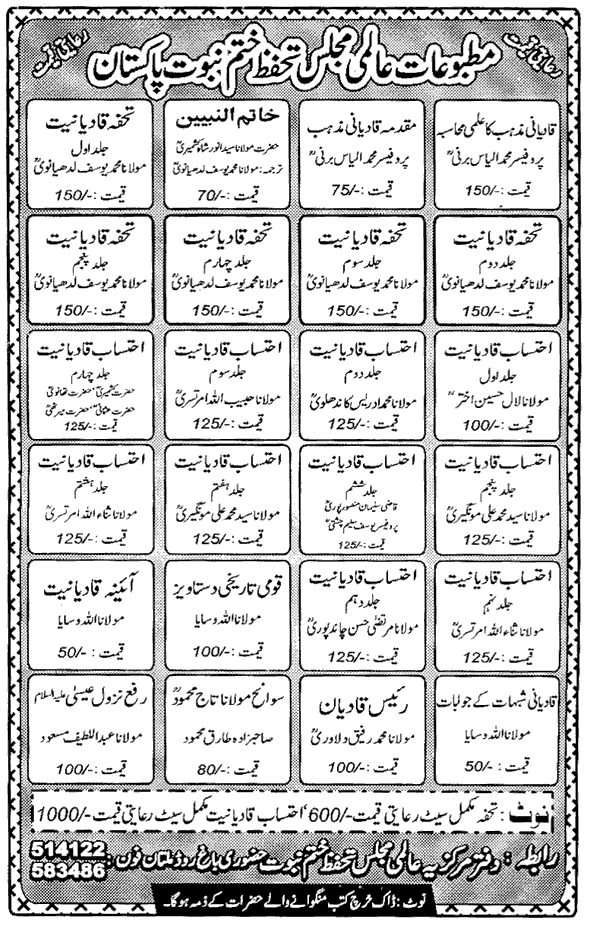 رعایتی قیمت
مطبوعات عالمی مجلس تحفظ ختم نبوت پاکستان
رعایتی قیمت
قادیانی مذہب کا علمی محاسبہ
پروفیسر محمد الیاس برنیؒ
قیمت :-/150
مقدمہ قادیانی مذہب
پروفیسر محمد الیاس برنیؒ
قیمت :-/75
خاتم النبیین
حضرت مولانا سید انور شاہ کشمیریؒ
ترجمہ: مولانا محمد یوسف لدھیانویؒ
قیمت :-/70
تحفہ قادیانیت
جلد اول
مولانا محمد یوسف لدھیانویؒ
قیمت :-/150
تحفہ قادیانیت
جلد دوم
مولانا محمد یوسف لدھیانویؒ
قیمت :-/150
تحفہ قادیانیت
جلد سوم
مولانا محمد یوسف لدھیانویؒ
قیمت :-/150
تحفہ قادیانیت
جلد چہارم
مولانا محمد یوسف لدھیانویؒ
قیمت :-/150
تحفہ قادیانیت
جلد پنجم
مولانا محمد یوسف لدھیانویؒ
قیمت :-/150
احتساب قادیانیت
جلد اول
مولانا لال حسین اخترؒ
قیمت :-/100
احتساب قادیانیت
جلد دوم
مولانا محمد ادریس کاندھلویؒ
قیمت :-/125
احتساب قادیانیت
جلد سوم
مولانا حبیب اللہ امرتسریؒ
قیمت :-/125
احتساب قادیانیت
جلد چہارم
حضرت کشمیریؒ حضرت تھانویؒ
حضرت عثمانیؒ حضرت میرٹھیؒ
قیمت :-/125
احتساب قادیانیت
جلد پنجم
مولانا سید محمد علی مونگیریؒ
قیمت :-/125
احتساب قادیانیت
جلد ششم
قاضی سلیمان منصور پوریؒ
پروفیسر یوسف سلیم چشتیؒ
قیمت :-/125
احتساب قادیانیت
جلد ہفتم
مولانا سید محمد علی مونگیریؒ
قیمت :-/125
احتساب قادیانیت
جلد ہشتم
مولانا ثناء اللہ امرتسریؒ
قیمت :-/125
احتساب قادیانیت
جلد نہم
مولانا ثناء اللہ امرتسریؒ
قیمت :-/125
احتساب قادیانیت
جلد دہم
مولانا مرتضیٰ حسن چاندپوریؒ
قیمت :-/125
قومی تاریخی دستاویز
مولانا اللہ وسایا
قیمت :-/100
آئینہ قادیانیت
مولانا اللہ وسایا
قیمت :-/50
قادیانی شبہات کے جوابات
مولانا اللہ وسایا
قیمت :-/50
رئیس قادیان
مولانا محمد رفیق دلاوریؒ
قیمت :-/100
سوانح مولانا تاج محمودؒ
صاحبزادہ طارق محمود
قیمت :-/80
رفع نزول عیسیٰ علیہ السلام
مولانا عبداللطیف مسعود
قیمت :-/100
نوٹ : تحفہ مکمل سیٹ رعایتی قیمت-/600 ‘ احتساب قادیانیت مکمل سیٹ رعایتی قیمت -/1000
رابطہ : دفتر مرکزیہ عالمی مجلس تحفظ ختم نبوت حضوری باغ روڈ ملتان فون : 514122
583486
نوٹ : ڈاک خرچ کتب منگوانے والے حضرات کے ذمہ ہوگا۔